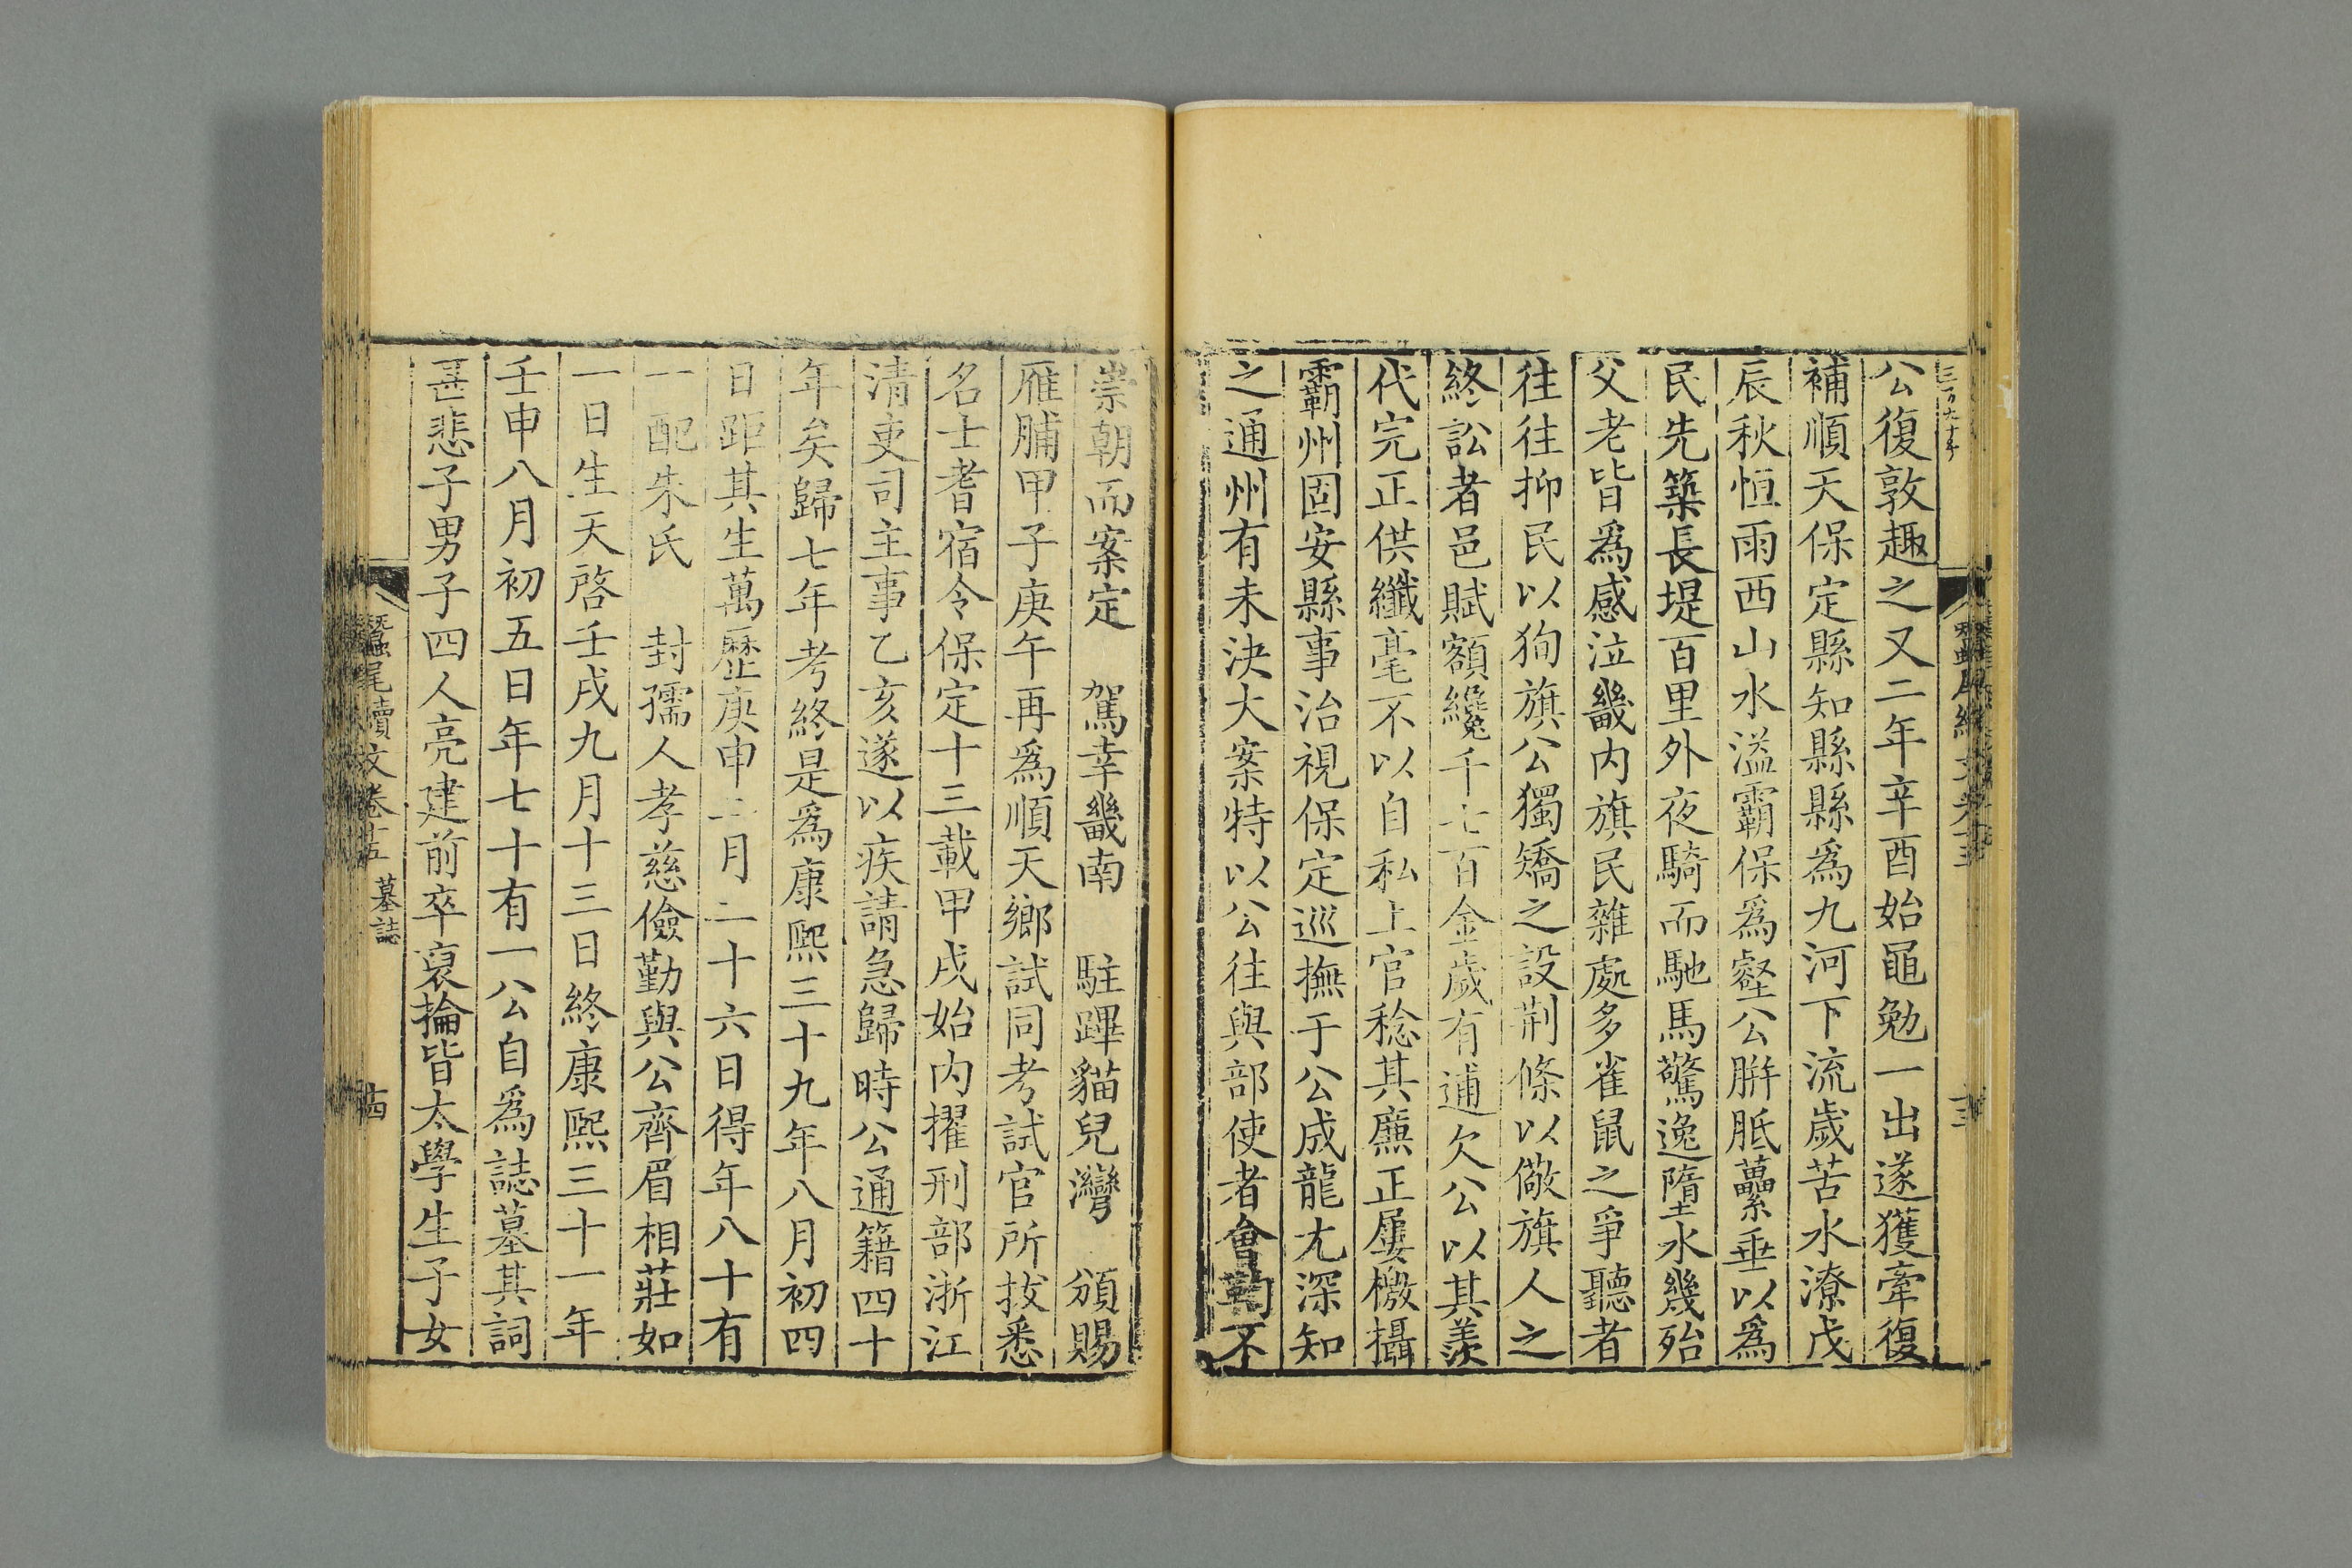 公復敦趣之又二年辛酉始黽勉一出遂獲牽復
補順天保定縣知縣縣為九河下流歲苦水潦戊
辰秋恒雨西山水溢霸保爲壑公胼胝虆垂以爲
民先築長堤百里外夜騎而馳馬驚逸墮水幾殆
父老皆爲感泣畿内旗民雜處多雀鼠之爭聽者
往往抑民以狥旗公獨矯之設荆條以儆旗人之
終訟者邑賦額纔千七百金歲有逋欠公以其羨
代完正供纖毫不以自私上官稔其廉正屢檄攝
霸州固安縣事治視保定巡撫于公成龍尤深知
之通州有未決大案特以公往與部使者會鞫不
崇朝而案定 駕幸畿南 駐蹕貓兒灣 頒賜
雁脯甲子庚午再爲順天鄉試同考試官所拔悉
名士耆宿令保定十三載甲戌始内擢刑部浙江
清吏司主事乙亥遂以疾請急歸時公通籍四十
年矣歸七年考終是爲康熙三十九年八月初四
日距其生萬歷庚申二月二十六日得年八十有
一配朱氏 封孺人孝慈儉勤與公齊眉相莊如
一日生天啓壬戌九月十三日終康熙三十一年
壬申八月初五日年七十有一公自爲誌墓其詞
甚悲子男子四人亮建前卒裒掄皆太學生子女
蠶尾續文卷十五 墓誌 十四